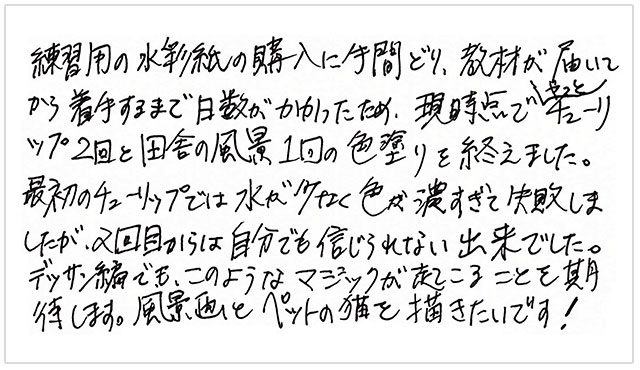 練習用の水彩紙の購入に手間どり、教材が届いて
から着手するまで日数がかかったため、現時点でやっとチューリ
ップ2回と田舎の風景1回の色塗りを終えました。
最初のチューリップでは水が少なく色が濃すぎて失敗しま
したが、2回目からは自分でも信じられない出来でした。
デッサン編でも、このようなマジックが起こることを期
待します。風景画とペットの猫を描きたいです!